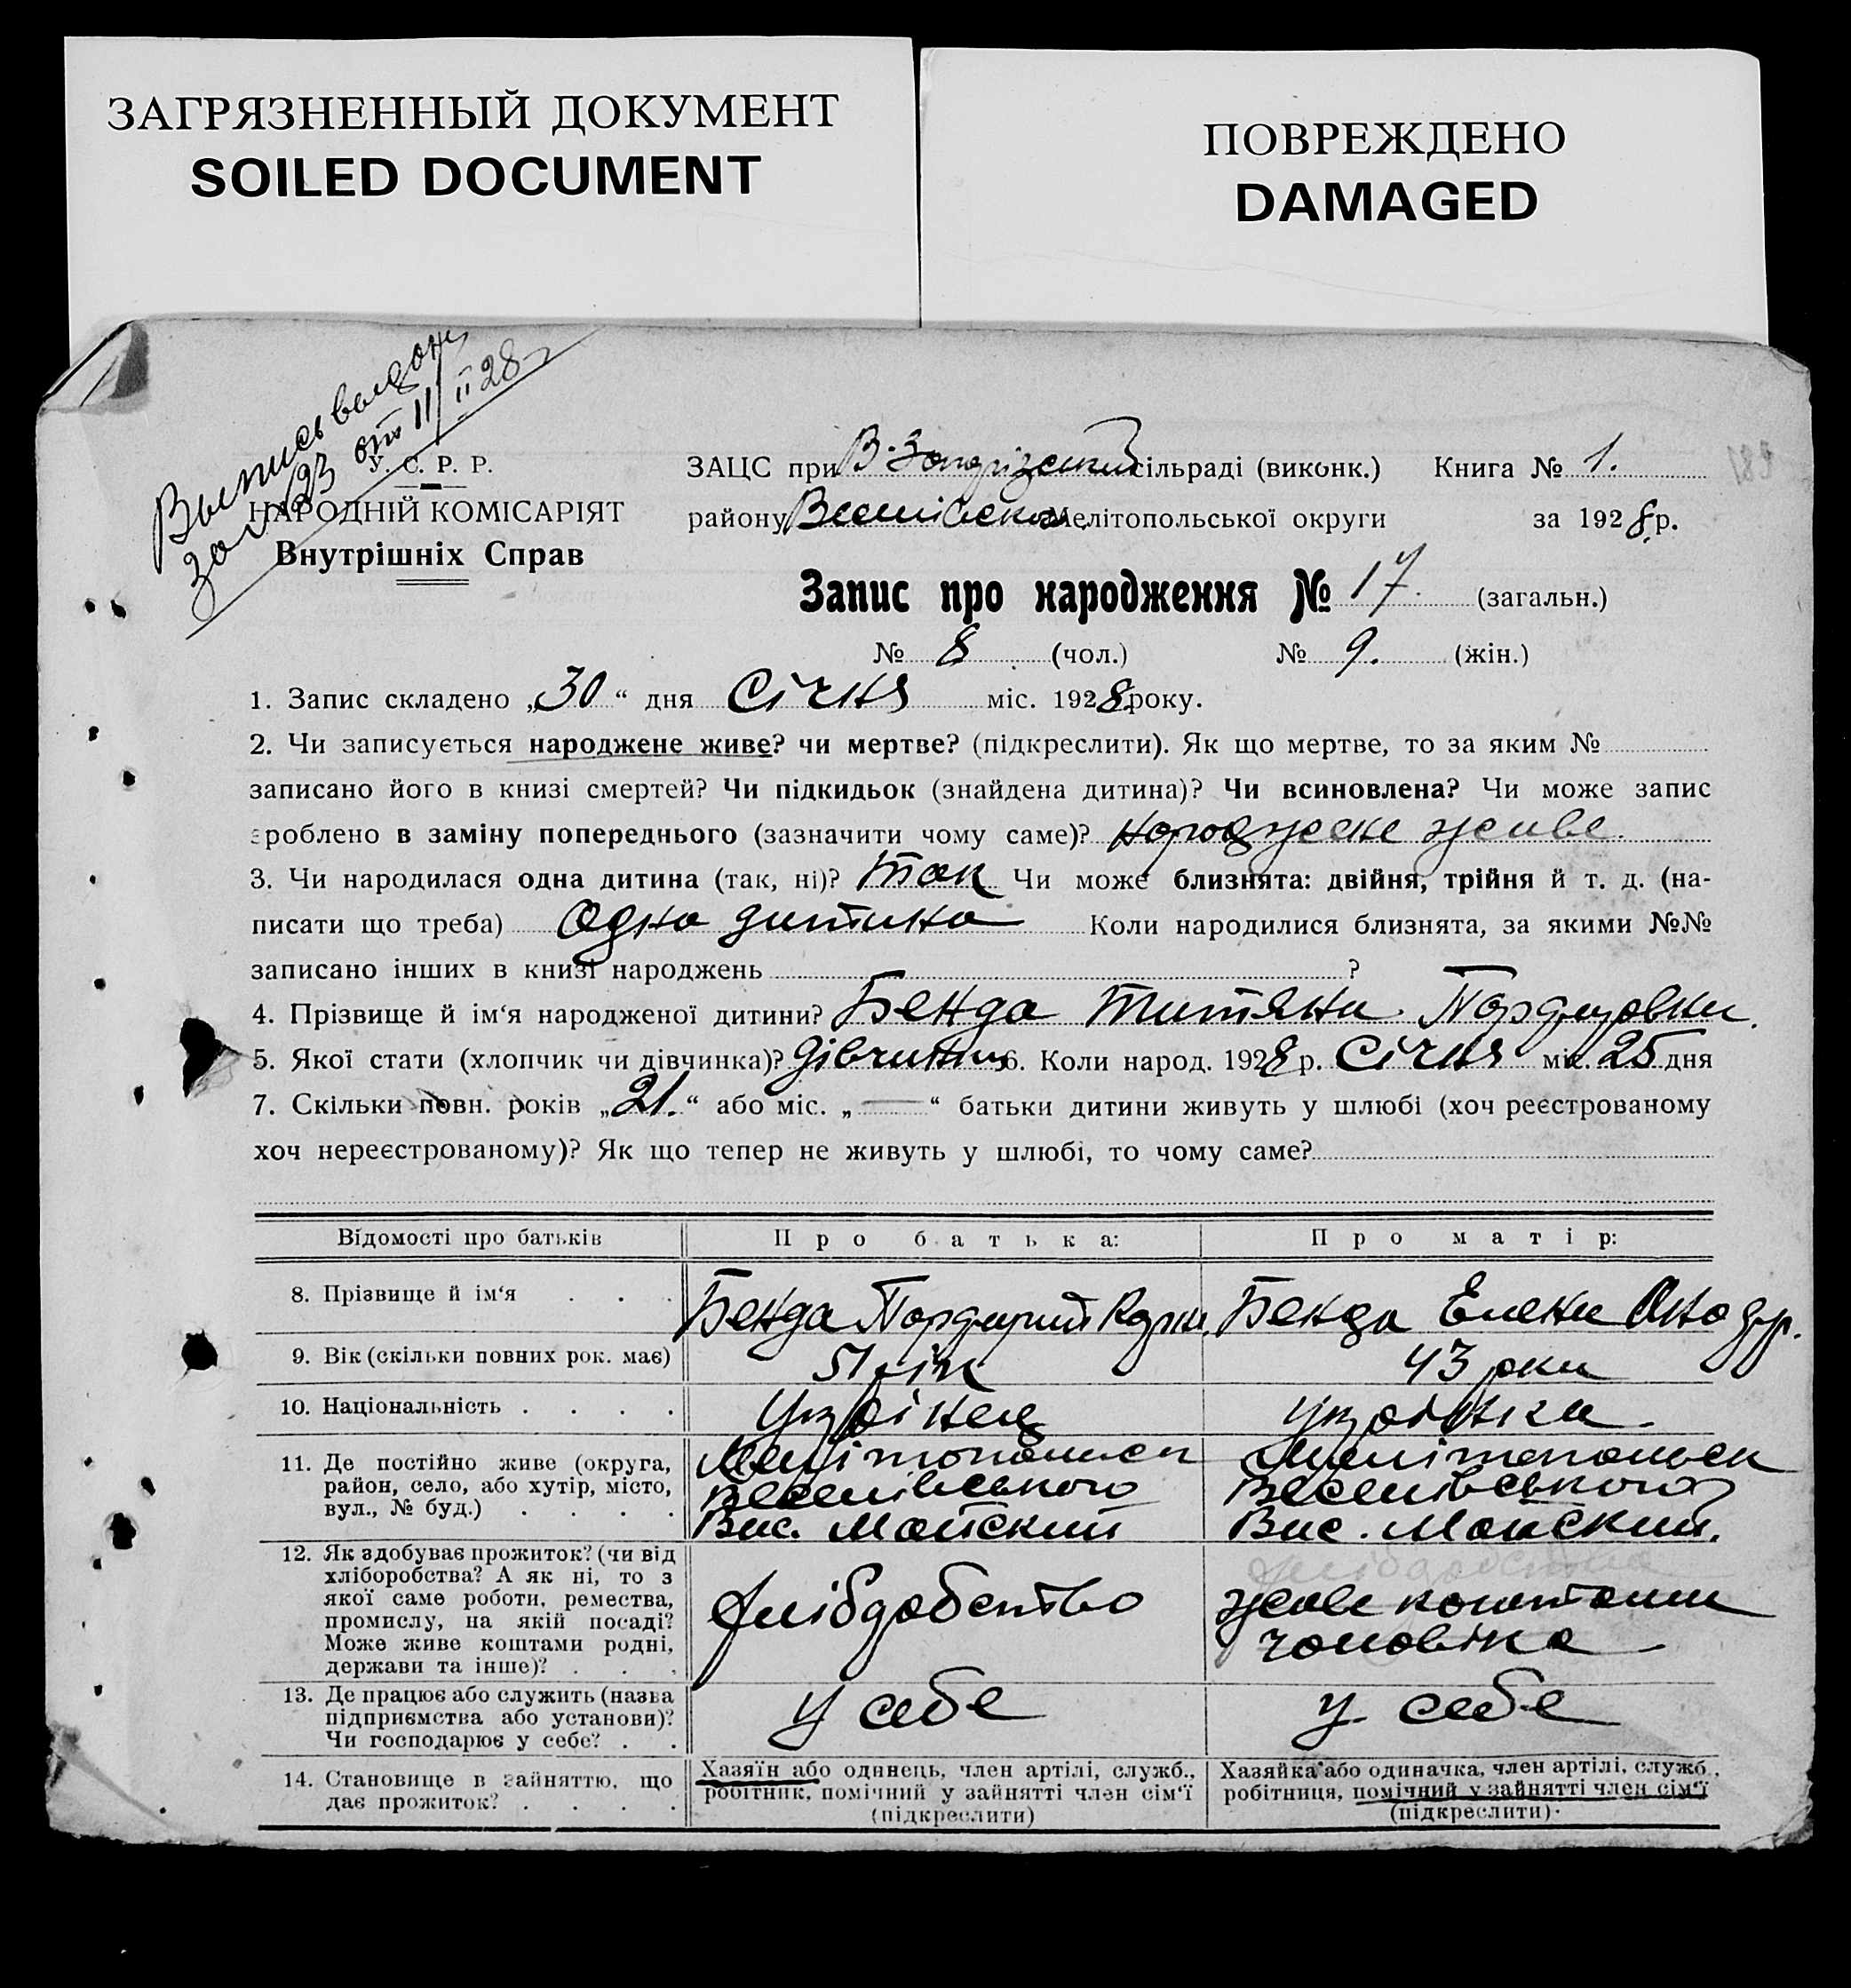 ЗАГРЯЗНЕННЫЙ ДОКУМЕНТ
SOILED DOCUMENT
ПОВРЕЖДЕНО
DAMAGED
Выпись выдон
за № 93 от 11/II 28
У. С. Р. Р.
НАРОДНІЙ КОМІСАРІЯТ
Внутрішніх Справ
ЗАЦС при В. сільраді (виконк.) Книга № 1.
району Веселівськ Мелітопольської округи за 1928 р.
Запис про народження № 17. (загальн.)
№ 8 (чол.) № 9. (жін.)
1. Запис складено „30“ дня Січня міс. 1928 року.
2. Чи записується народжене живе? чи мертве? (підкреслити). Як що мертве, то за яким №
записано його в книзі смертей? Чи підкидьок (знайдена дитина)? Чи всиновлена? Чи може запис
зроблено в заміну попереднього (зазначити чому саме)? Народжене живе.
3. Чи народилася одна дитина (так, ні)? Так Чи може близнята: двійня, трійня й т. д. (на-
писати що треба) Одна дитина Коли народилися близнята, за якими №№
записано інших в книзі народжень ?
4. Прізвище й ім‘я народженої дитини? Бенда Титяни Порфировни.
5. Якої стати (хлопчик чи дівчинка)? Дівчинки 6. Коли народ. 1928 р. Січня міс. 25 дня
7. Скільки повн. років „21.“ або міс. „—“ батьки дитини живуть у шлюбі (хоч реєстрованому
хоч нереєстрованому)? Як що тепер не живуть у шлюбі, то чому саме?
Відомості про батьків Про батька: Про матір:
8. Прізвище й ім‘я Бенда Порфирий Бенда Елени
9. Вік (скільки повних рок. має) 51 рік 43 роки
10. Національність Українец Українки.
11. Де постійно живе (округа,
район, село, або хутір, місто,
вул., № буд.)
Мелітопольск
Веселівського
Вис. Майский
Мелітопольск
Веселівського
Вис. Майский.
12. Як здобуває прожиток? (чи від
хліборобства? А як ні, то з
якої саме роботи, ремества,
промислу, на якій посаді?
Може живе коштами родні,
держави та інше)?
Хлібробство
живе коштами
чоловіка
13. Де працює або служить (назва
підприємства або установи)?
Чи господарює у себе?
у себе
у себе
14. Становище в зайняттю, що
дає прожиток?
Хазяїн або одинець, член артілі, служб.,
робітник, помічний у зайнятті член сім‘ї
(підкреслити)
Хазяйка або одиначка, член артілі, служб.,
робітниця, помічний у зайнятті член сім‘ї
(підкреслити).